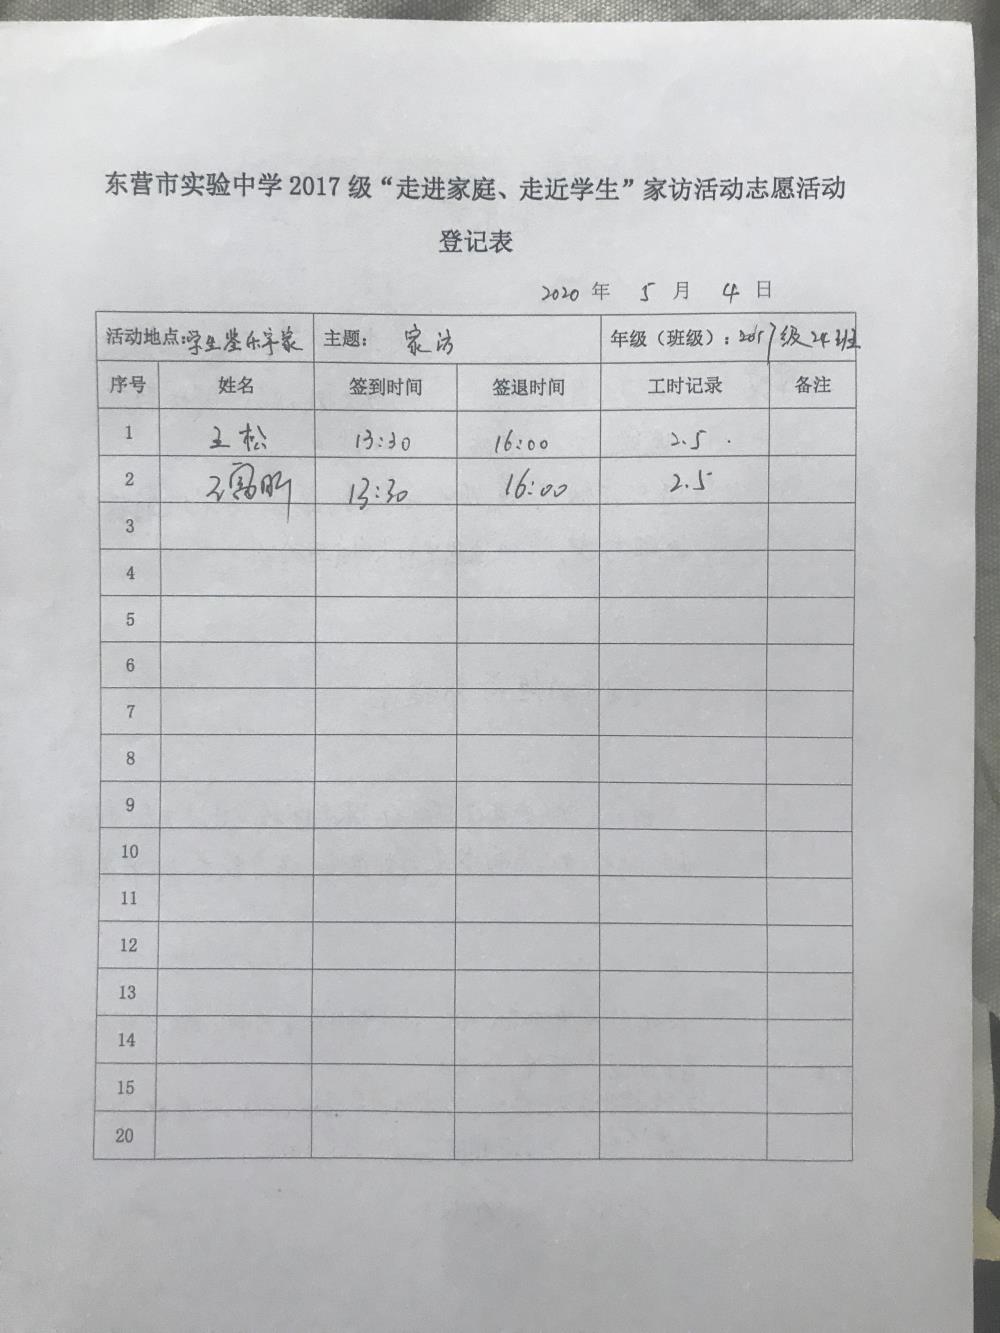 东营市实验中学 2017 级“走进家庭、走近学生”家访活动志愿活动
登记表
2020 年 5 月 4 日
活动地点：学生 家 主题： 家访 年级（班级）：2017级24班
序号 姓名 签到时间 签退时间 工时记录 备注
1 王松 13:30 16:00 2.5
2 13:30 16:00 2.5
3
4
5
6
7
8
9
10
11
12
13
14
15
20